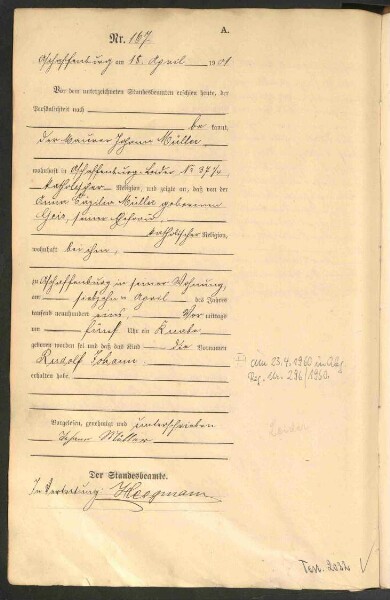 A.
Nr. 167.
Aschaffenburg am 18. April 1901
Vor dem unterzeichneten Standesbeamten erschien heute, der
Persönlichkeit nach
be kannt,
der Maurer Johann Müller
wohnhaft in Aschaffenburg-Leider No 37
katholischer Religion, und zeigte an, daß von der
Anna Müller geborenen
Geis, seiner Ehefrau,
katholischer Religion,
wohnhaft bei ihm,
zu Aschaffenburg in seiner Wohnung,
am siebzehn April des Jahres
tausend neunhundert eins Vor mittags
um fünf Uhr ein Knabe
geboren worden sei und daß das Kind die Vornamen
Rudolf Johann
erhalten habe.
am 23.4.1960
Reg. Nr. 286/1960.
Vorgelesen, genehmigt und unterschrieben
Johann Müller
Der Standesbeamte.
In Vertretung: Hegmann